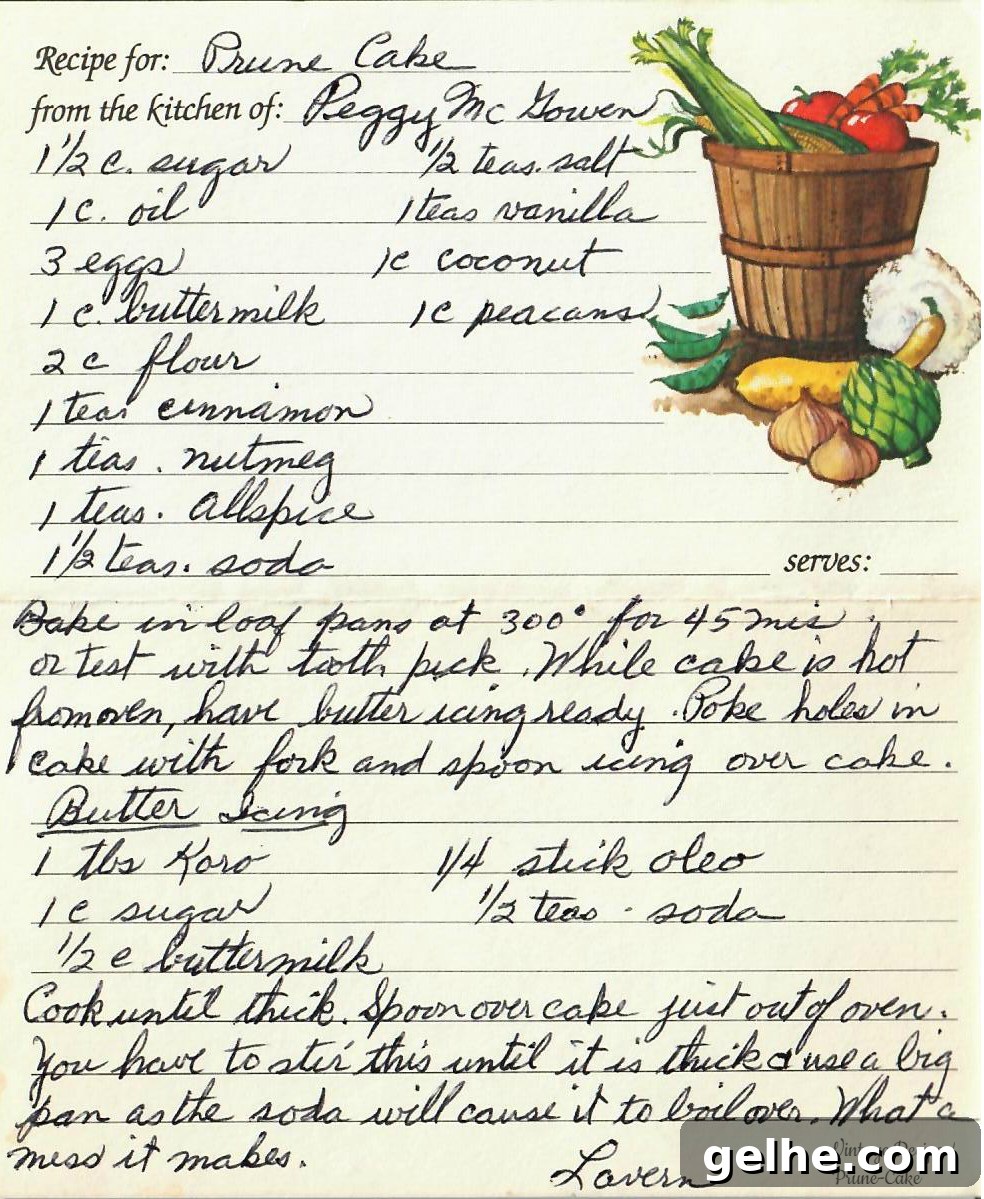 Recipe for: Prune Cake
from the kitchen of: Peggy Mc Gowen
1 1/2 c. sugar 1/2 teas. salt
1 c. oil 1 teas vanilla
3 eggs 1c coconut
1 c. buttermilk 1c peacans
2 c flour
1 teas cinnamon
1 teas. nutmeg
1 teas. Allspice
1 1/2 teas. soda serves:
Bake in loaf pans at 300° for 45 mis.
or test with tooth pick. While cake is hot
from oven, have butter icing ready. Poke holes in
cake with fork and spoon icing over cake.
Butter Icing
1 tbs Karo 1/4 stick oleo
1 c sugar 1/2 teas. soda
1/2 c buttermilk
Cook until thick. Spoon over cake just out of oven.
You have to stir this until it is thick & use a big
pan as the soda will cause it to boil over. What a
mess it makes.
Lavern
gelhe.com
Prune-Cake